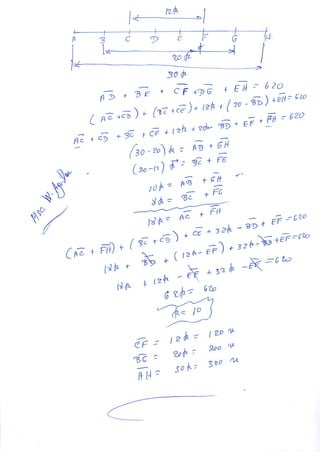 12k
A B C D E F G H
20k
30k
AD + BE + CF + DG + EH = 620
(AC + CD) + (BC + CE) + 12k + (20 - BD) + EH = 620
AC + CD + BC + CE + 12k + 20k - BD + EF + FH = 620
(30-20)k = AB + GH
(20-12)k = BC + FG
10k = AB + GH
8k = BC + FG
18k = AC + FH
(AC + FH) + (BC + CD) + CE + 32k - BD + EF = 620
18k + BD + (12k - EF) + 32k - BD + EF = 620
18k + 12k - EF + 32k - EF = 620
62k = 620
k = 10
CF = 12k = 120 u
BG = 20k = 200 u
AH = 30k = 300 u